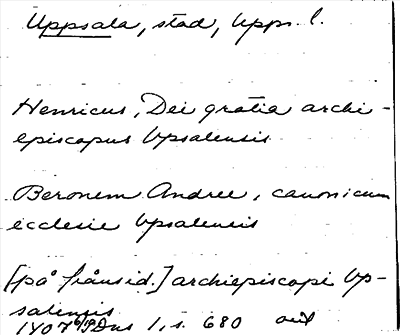 Uppsala, stad, Upps. l.
Henricus, Dei gratia archi-
episcopus Upsalensis
Beronem Andree, canonicum
ecclesie Upsalensis
[på frånsid.] archiepiscopi Up-
salensis
1407 Dns 1, s. 680